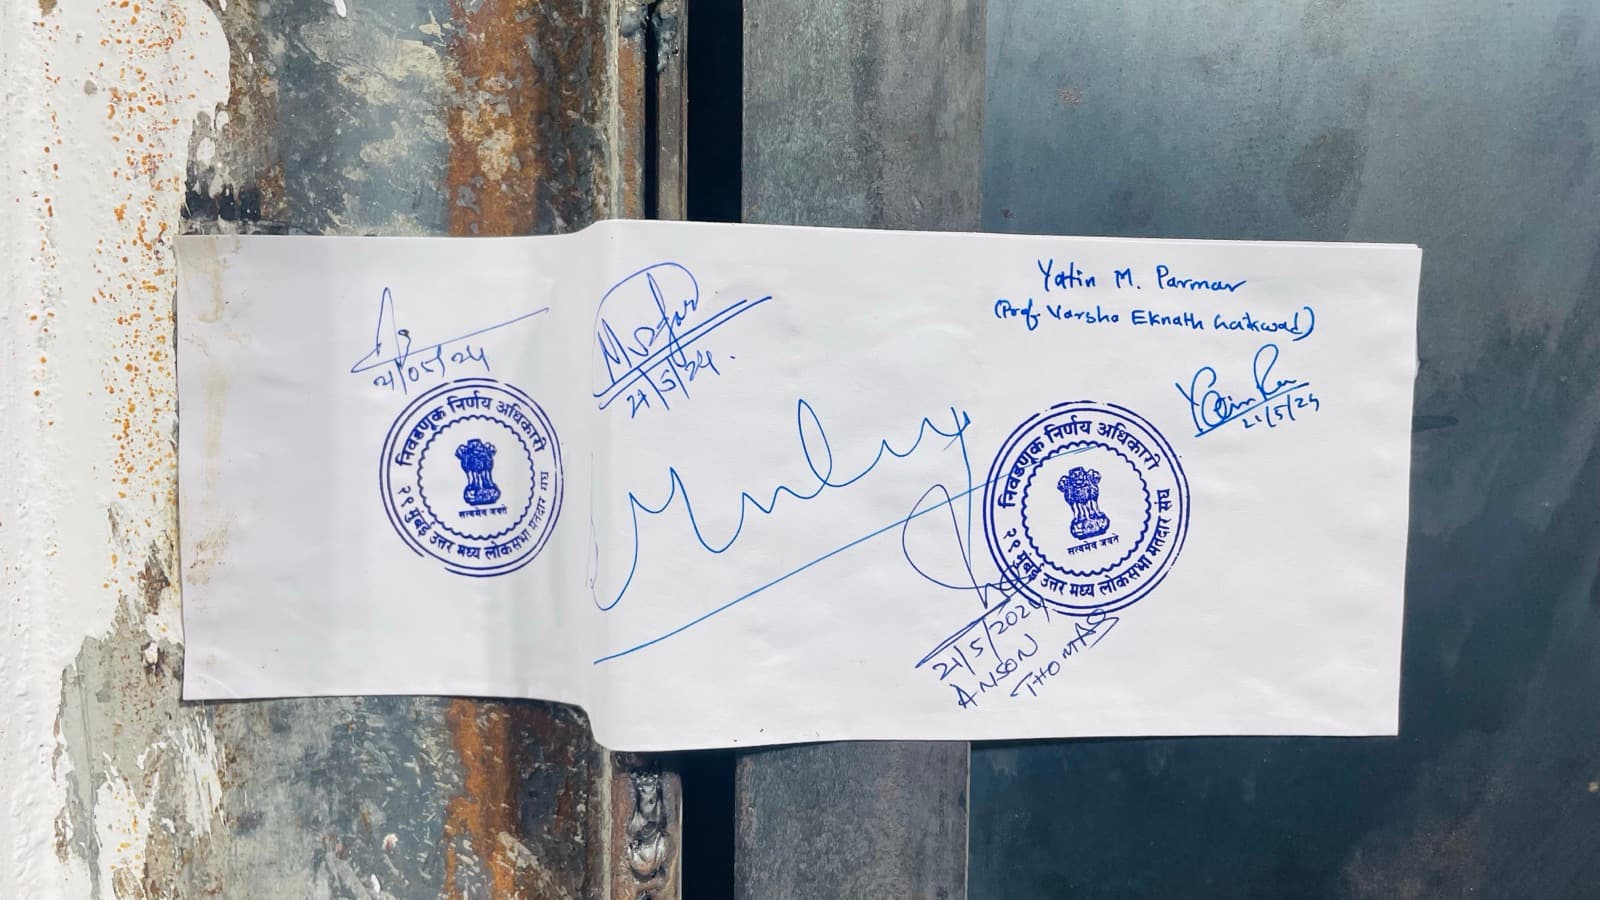 21/05/24
निवडणूक निर्णय अधिकारी
सत्यमेव जयते
२९ मुंबई उत्तर मध्य लोकसभा मतदार संघ
21/5/24.
Yatin M. Parmar
(Prof. Varsha Eknath Gaikwad)
21/5/24
निवडणूक निर्णय अधिकारी
सत्यमेव जयते
२९ मुंबई उत्तर मध्य लोकसभा मतदार संघ
21/5/2024
ANSON
THOMAS